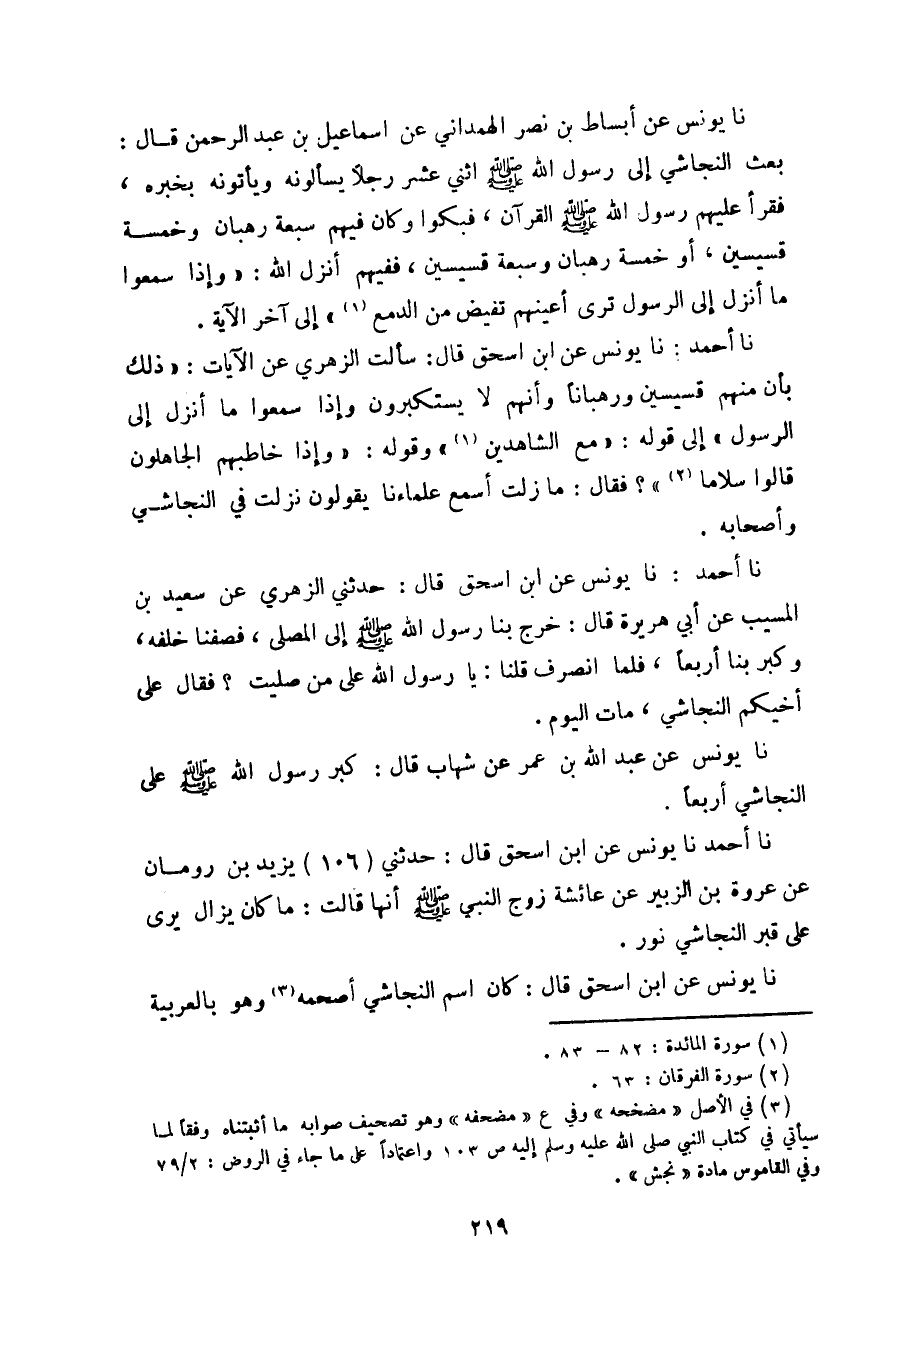 نا يونس عن أبساط بن نصر الهمداني عن اسماعيل بن عبد الرحمن قـال :
بعث النجاشي إلى رسول الله ﷺ اثني عشر رجلاً يسألونه ويأتونه بخبره ،
فقرأ عليهم رسول الله ﷺ القرآن ، فبكوا وكان فيهم سبعة رهبان وخمسـة
قسيسين ، أو خمسة رهبان وسبعة قسيسين ، ففيهم أنزل الله : « وإذا سمعوا
ما أنزل إلى الرسول ترى أعينهم تفيض من الدمع (١) » إلى آخر الآية .
نا أحمد : نا يونس عن ابن اسحق قال : سألت الزهري عن الآيات : « ذلك
بأن منهم قسيسين ورهباناً وأنهم لا يستكبرون وإذا سمعوا ما أنزل إلى
الرسول » إلى قوله : « مع الشاهدين (١) » وقوله : « وإذا خاطبهم الجاهلون
قالوا سلاما (٢) » ؟ فقال : ما زلت أسمع علماءنا يقولون نزلت في النجاشـي
وأصحابه .
نا أحمد : نا يونس عن ابن اسحق قال : حدثني الزهري عن سعيد بن
المسيب عن أبي هريرة قال : خرج بنا رسول الله ﷺ إلى المصلى ، فصفنا خلفه ،
وكبر بنا أربعاً ، فلما انصرف قلنا : يا رسول الله على من صليت ؟ فقال على
أخيكم النجاشي ، مات اليوم .
نا يونس عن عبد الله بن عمر عن شهاب قال : كبر رسول الله ﷺ على
النجاشي أربعاً .
نا أحمد نا يونس عن ابن اسحق قال : حدثني ( ١٠٦ ) يزيد بن رومـان
عن عروة بن الزبير عن عائشة زوج النبي ﷺ أنها قالت : ما كان يزال يرى
على قبر النجاشي نور .
نا يونس عن ابن اسحق قال : كان اسم النجاشي أصحمه (٣) وهو بالعربية
(١) سورة المائدة : ٨٢ – ٨٣ .
(٢) سورة الفرقان : ٦٣ .
(٣) في الأصل « مضخحه » وفي ع « مضحفه » وهو تصحيف صوابه ما أثبتناه وفقاً لمـا
سيأتي في كتاب النبي صلى الله عليه وسلم إليه ص ١٠٣ واعتماداً على ما جاء في الروض : ٧٩/٢
وفي القاموس مادة « نجش » .
٢١٩